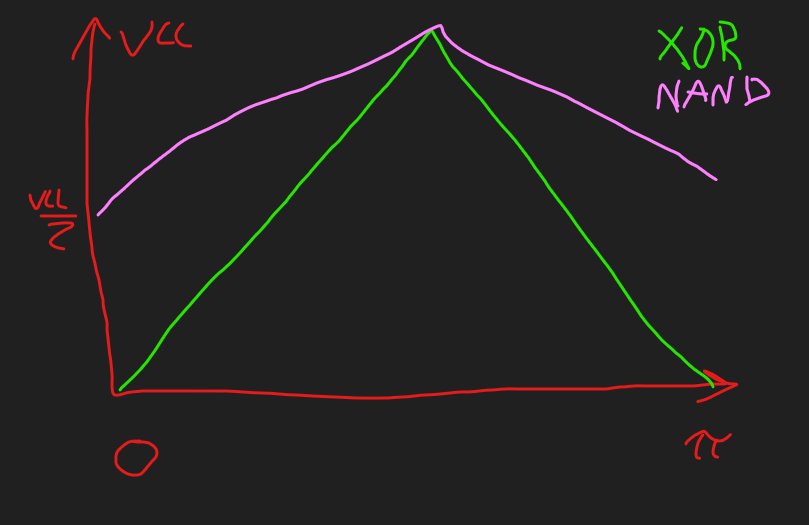 VCC
XOR
NAND
VCC
2
0
π